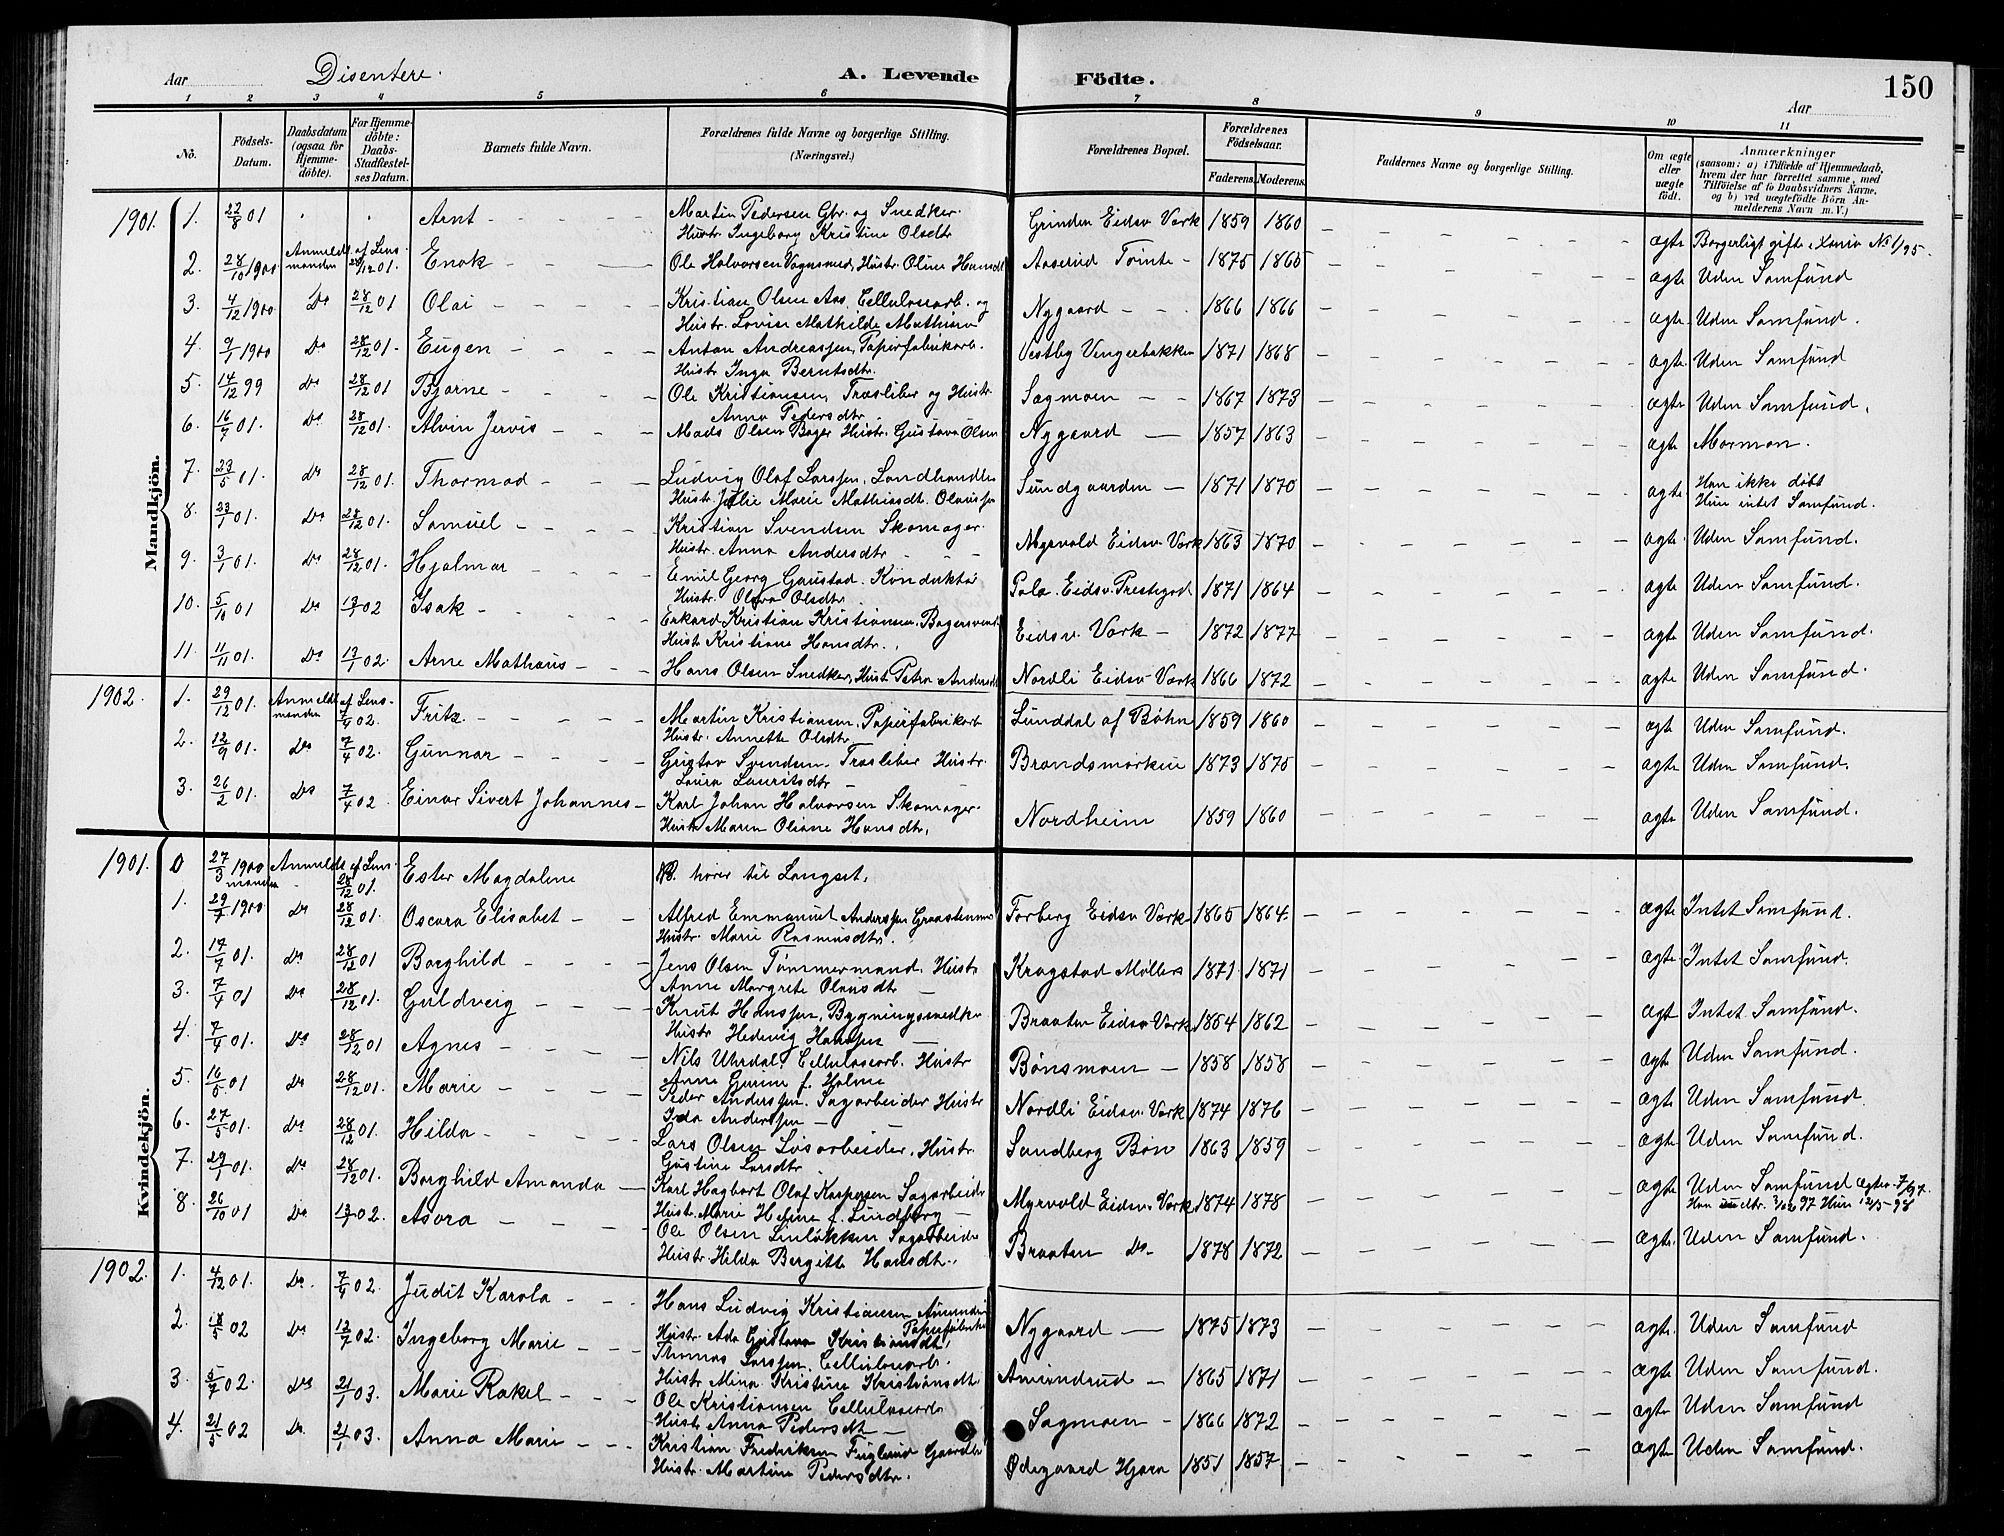 Aar Disentere. A. Levende Födte. Aar 150
1 2 3 4 5 6 7 8 9 10 11
No. Födsels-Datum. Daabsdatum (ogsaa for Hjemme-döbte). For Hjemme-döbte: Daabs-Stadfæstel-ses Datum. Barnets fulde Navn. Forældrenes fulde Navne og borgerlige Stilling. (Næringsvei.) Forældrenes Bopæl. Forældrenes Födselsaar. Faderens. Moderens. Faddernes Navne og borgerlige Stilling. Om ægte eller uægte födt. Anmærkninger (saasom: a) i Tilfælde af Hjemmedaab, hvem der har forrettet samme, med Tilföielse af to Daabsvidners Navne, og b) ved uægtefödte Börn An-melderens Navn m. V.)
Mandkjön.
1901. 1. 22/8 01 Arnt - Martin Pedersen Gbr. og Snedker. Grinden Eidsv Værk 1859 1860 ægte Borgerligt gifte
Hustr Ingeborg Kristine Olsdtr
2. 28/10 1900 Anmeldt af Lens-manden 28/12 01. Enok - Ole Halvorsen Vognsmed, Hustr. Oline Hansdt Aaserud Tømte - 1875 1865 ægte Uden Samfund
3. 4/12 1900 Do 28/12 01 Olai - Kristian Olsen Aas. Cellulosearb. og Nygaard - 1866 1866 ægte. Uden Samfund.
Hustr. Lovise Mathilde Mathisen
4. 9/1 1900 Do 28/12 01 - Eugen - Anton Andreassen, Papirfabrikarb. Vestby Vingerbakken 1871 1868 ægte. Uden Samfund
Hustr Inga Berntsdtr.
5. 14/12 99 Do 28/12 01 Bjarne - Ole Kristiansen, Træsliber og Hustr Sagmoen - 1867 1873 ægte Uden Samfund.
Anna Pedersdtr
6. 16/7 01. Do 28/12 01. Alvin Jervis - Mads Olsen Bager Hustr. Gustava Olsen Nygaard - 1857 1863 ægte Mormon.
7. 23/5 01. Do 28/12 01. Thormod - Ludvig Olaf Larssen, Landhandler Sundgaarden - 1871 1870 ægte Han ikke døbt
Hustr. Julie Marie Mathiasdt. Olaussen Hun intet Samfund.
8. 23/1 01. Do 28/12 01. Samuel - Kristian Svendsen Skomager. Myrvold Eidsv. Værk 1863 1870 ægte. Uden Samfund.
Hustr. Anna Andersdtr
9. 3/1 01. Do 28/12 01. Hjalmar - Emil Georg Gaustad. Konduktør Eidsv. Prestegrd. 1871 1864 ægte Uden Samfund.
Hustr. Olava Olsdtr.
10. 5/10 01 Do 13/1 02 Isak - Kristian Kristiansen, Bagersvend Eidsv. Værk - 1872 1877 ægte Uden Samfund.
Hustr Kristiane Hansdtr.
11. 11/11 01. Do 13/1 02. Arne Mathæus - Hans Olsen Snedker, Hust. Petra Andersdt Nordli Eidsv Værk 1866 1872 ægte Uden Samfund.
1902. 1. 29/12 01. Anmeldt af Lens-manden 7/4 02. Fritz - Martin Kristiansen, Papirfabrikarb Sunddal af Bøhn 1859 1860 ægte Uden Samfund.
Hustr. Annette Olsdtr
2. 12/9 01. Do 7/4 02. Gunnar - Gustav Svendsen. Træsliber Hustr. Brandsmarken 1873 1875 ægte Uden Samfund.
Laura Lauritsdtr
3. 26/2 01. Do 7/4 02. Einar Sivert Johannes - Karl Johan Halvorsen Skomager. Nordheim 1859 1860 ægte Uden Samfund.
Hustr Maren Oliane Hansdtr.
Kvindekjön.
1901. 0 27/3 1900 Anmeldt af Lens-manden 28/12 01. Ester Magdalene NB. hører til Langset.
1. 29/7 1900 Do 28/12 01. Oscara Elisabet - Alfred Emmanuel Anderssen Forberg Eidsv Værk 1865 1864 ægte Intet Samfund.
Hustr. Marie Rasmusdtr.
2. 17/7 01. Do 28/12 01 Borghild - Jens Olsen Tømmermand. Hustr Kragstad Møllers 1871 1871 ægte Intet Samfund.
Anne Margrete Olausdtr
3. 7/4 01 Do 28/12 01. Guldveig - Knut Hanssen, Bygningssnedker Braaten Eidsv Værk 1854 1862 ægte Intet Samfund.
Hustr Hedevig Hanssen
4. 7/4 01. Do 28/12 01 Agnes - Nils Uhrdal, Cellulosearb. Hustr Bønsmoen - 1858 1858 ægte Uden Samfund.
Anne Gurine f. Holme
5. 16/5 01 Do 28/12 01. Marie - Peder Anderssen. Sagarbeider Hustr Nordli Eidsv. Værk 1874 1876 ægte Uden Samfund.
Ida Anderssen -
6. 27/5 01. Do 28/12 01. Hilda - Lars Olsen Løsarbeider. Hustr. Sandberg Bøn 1863 1859 ægte Uden Samfund.
Gustine Larsdtr
7. 29/7 01. Do 28/12 01. Borghild Amanda - Karl Hagbart Olaf Kaspersen Sagarbeider Myrvold Eidsv. Værk 1874 1878 ægte Uden Samfund
Hustr. Marie Helene f. Lindberg -
8. 26/10 01 Do 13/1 02. Asora - Ole Olsen Linløkken Sagarbeider Braaten Do - 1878 1872 ægte. Uden Samfund.
Hustr. Hilda Bergitte Hansdtr.
1902. 1. 4/12 01. Do. 7/4 02. Judit Karola - Hans Ludvig Kristiansen Nygaard - 1875 1873 ægte. Uden Samfund
Hustr. Ada Gustava Kristiansdt.
2. 18/5 02 Do 12/7 02. Ingeborg Marie - Thomas Larssen, Cellulosearb. Amundrud - 1865 1871 ægte. Uden Samfund.
Hustr Mina Kristine Kristiansdt
3. 5/7 02. Do 21/1 03. Marie Rakel - Ole Kristiansen Cellulosearb Sagmoen - 1866 1872 ægte Uden Samfund
Hustr Anna Pedersdt -
4. 21/5 02 Do. 21/1 03. Anna Marie - Kristian Fredriksen Fuglsund Ødegaard Hjera 1851 1857 ægte Uden Samfund.
Hustr. Martine Pedersdtr.